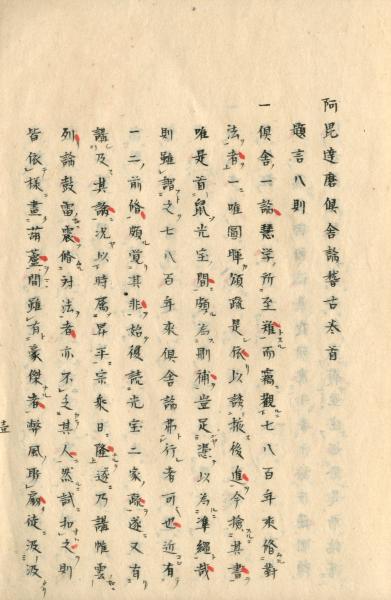 阿毘達磨倶舎論稽古卷首
題言八則
一倶舎一論慧学所至難而竊觀七八百年来脩對
法者一唯圓暉頌疏是依以談掖後進今撿其書
唯是首鼠光宝間頗為刪補豈足憑以為準繩哉
則雖謂之七八百年来倶舎論弗行者可也近有
一二前脩頗覚其非始復読光宝二家疏遂又有
講及其論況以時属昇平宗乗日隆逐乃講帷雲
列論鼓雷震脩対法者亦不乏其人然試扣之則
皆依様畫葫蘆間雖有豪傑者弊風所扇徒汲汲
壹